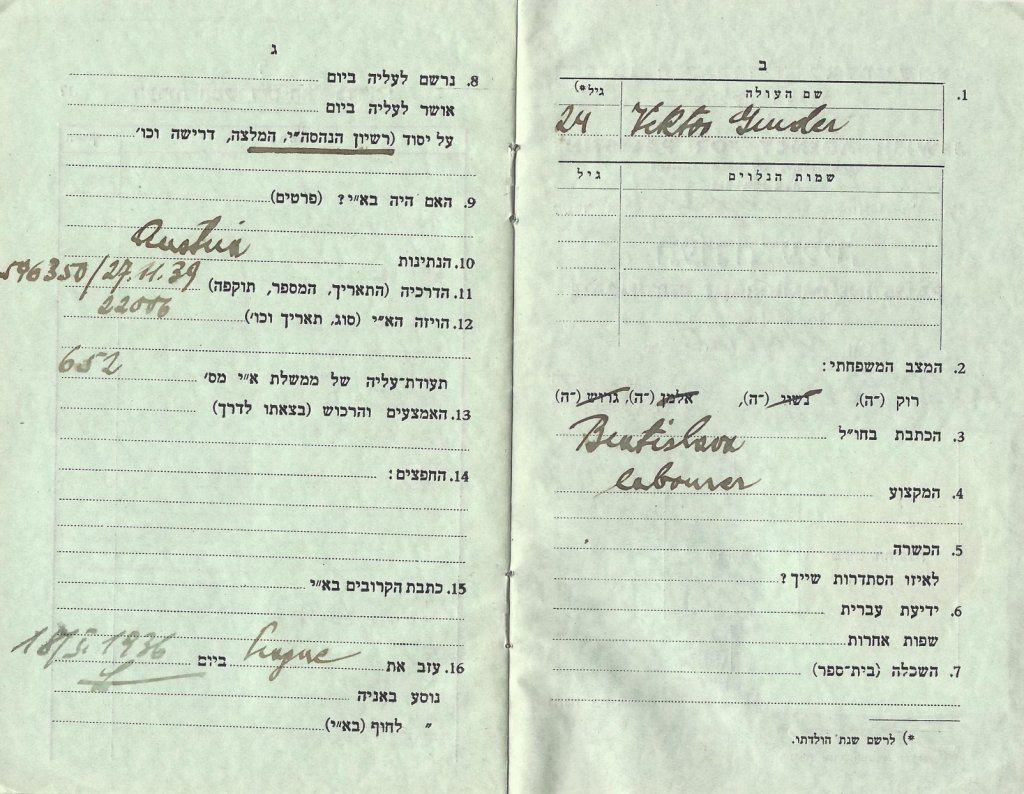 ב
1. שם העולה גיל*)
Viktor Gruder 24
שמות הנלוים גיל
2. המצב המשפחתי:
רוק (־ה), נשוי (־ה), אלמן (־ה), גרוש (־ה)
3. הכתבת בחו"ל Bratislava
4. המקצוע labourer
5. הכשרה
לאיזו הסתדרות שייך?
6. ידיעת עברית
שפות אחרות
7. השכלה (בית־ספר)
*) לרשם שנת הולדתו.
ג
8. נרשם לעליה ביום
אושר לעליה ביום
על יסוד (רשיון הנהסה"י, המלצה, דרישה וכו'
9. האם היה בא"י? (פרטים)
10. הנתינות Austria
11. הדרכיה (התאריך, המספר, תוקפה) 596350/27.11.39
12. הויזה הא"י (סוג, תאריך וכו') 22006
תעודת־עליה של ממשלת א"י מס' 652
13. האמצעים והרכוש (בצאתו לדרך)
14. החפצים:
15. כתבת הקרובים בא"י
16. עזב את Prague ביום 18/5. 1936
נוסע באניה
" לחוף (בא"י)